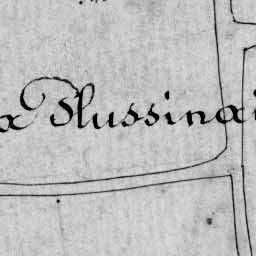 a Slussinai